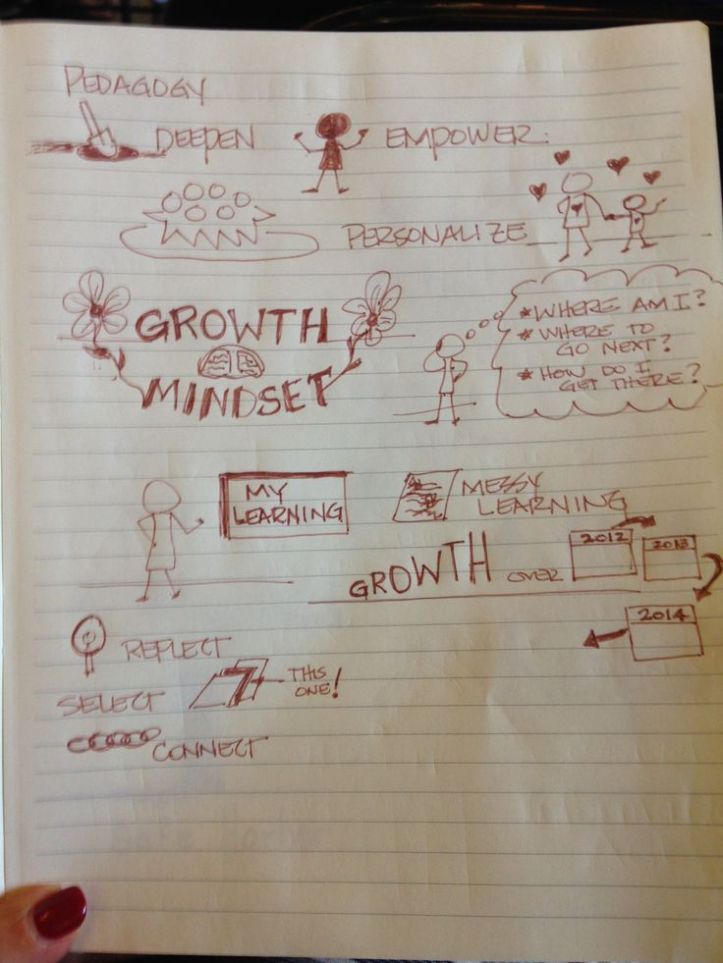 PEDAGOGY
DEEPEN
EMPOWER:
PERSONALIZE
GROWTH
MINDSET
* WHERE AM I?
* WHERE TO
GO NEXT?
* HOW DO I
GET THERE?
MY
LEARNING
MESSY
LEARNING
GROWTH OVER
2012
2013
2014
REFLECT
SELECT
THIS
ONE!
CONNECT